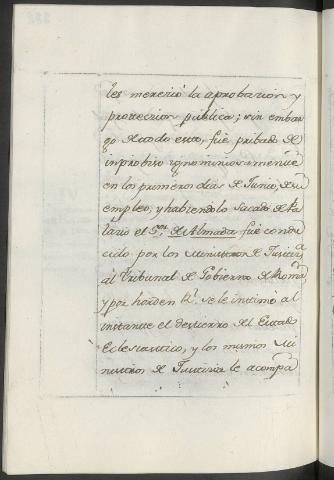 les mereció la aprobacion y
proteccion publica; sin embar
go de todo esto, fue pribado de
inprobiso ignominiosamente
en los primeros dias de Junio, de su
empleo, y habiendolo sacado de Pa
lacio el Sor. de Almada fue condu
cido por los Ministros de Justicia
al Tribunal de Gobierno de Roma
y por horden Rl. se le intimó al
instante el destierro del Estado
Eclesiastico, y los mismos Mi
nistros de Justicia le acompa